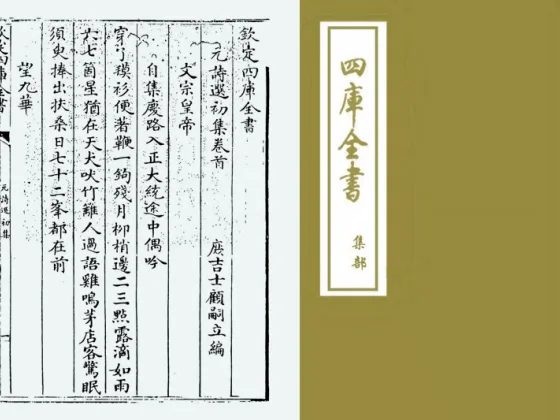 欽定四庫全書
元詩選初集卷首
庶吉士顧嗣立編
文宗皇帝
自集慶路入正大統途中偶吟
穿了㡓衫便著鞭一鉤殘月柳梢邊二三點露滴如雨
六七箇星猶在天犬吠竹籬人過語雞鳴茅店客驚眠
須臾捧出扶桑日七十二峯都在前
望九華
元詩選初集
四庫全書
集部